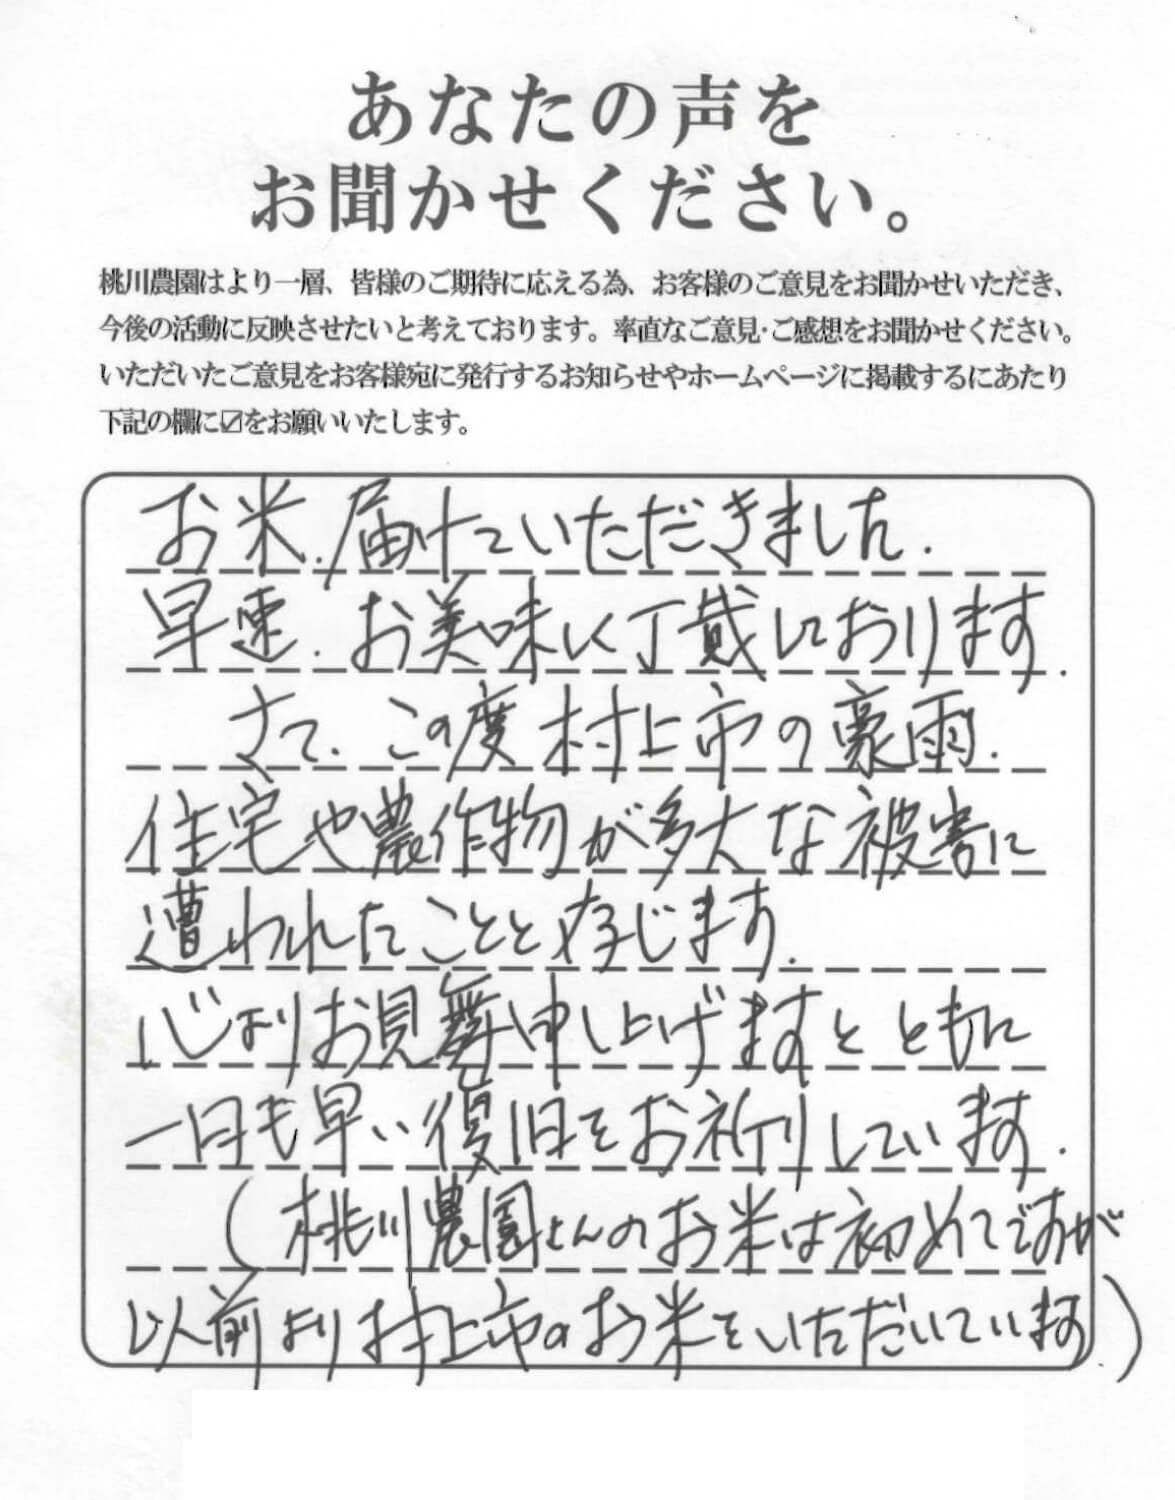 あなたの声を
お聞かせください。
桃川農園はより一層、皆様のご期待に応える為、お客様のご意見をお聞かせいただき、
今後の活動に反映させたいと考えております。率直なご意見・ご感想をお聞かせください。
いただいたご意見をお客様宛に発行するお知らせやホームページに掲載するにあたり
下記の欄に☑をお願いいたします。
お米、届けていただきました。
早速、お美味しく丁戴しております。
さて、この度村上市の豪雨、
住宅や農作物が多大な被害に
遭われたことと存じます。
心よりお見舞申し上げますとともに
一日も早い復旧をお祈りしています。
(桃川農園さんのお米は初めてですが
以前より村上市のお米をいただいています。)